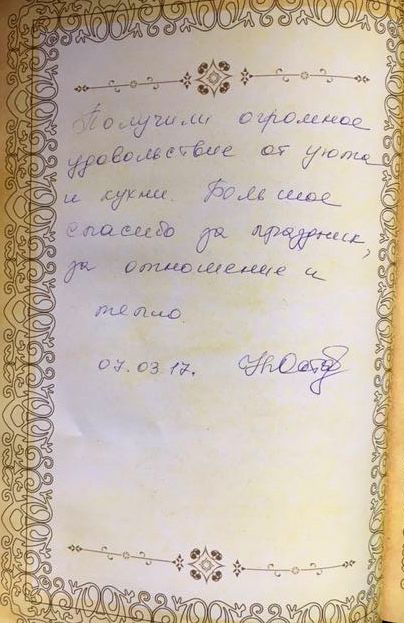 Получили огромное
удовольствие от уюта
и кухни. Большое
спасибо за праздник,
за отношение и
тепло.
07.03.17.